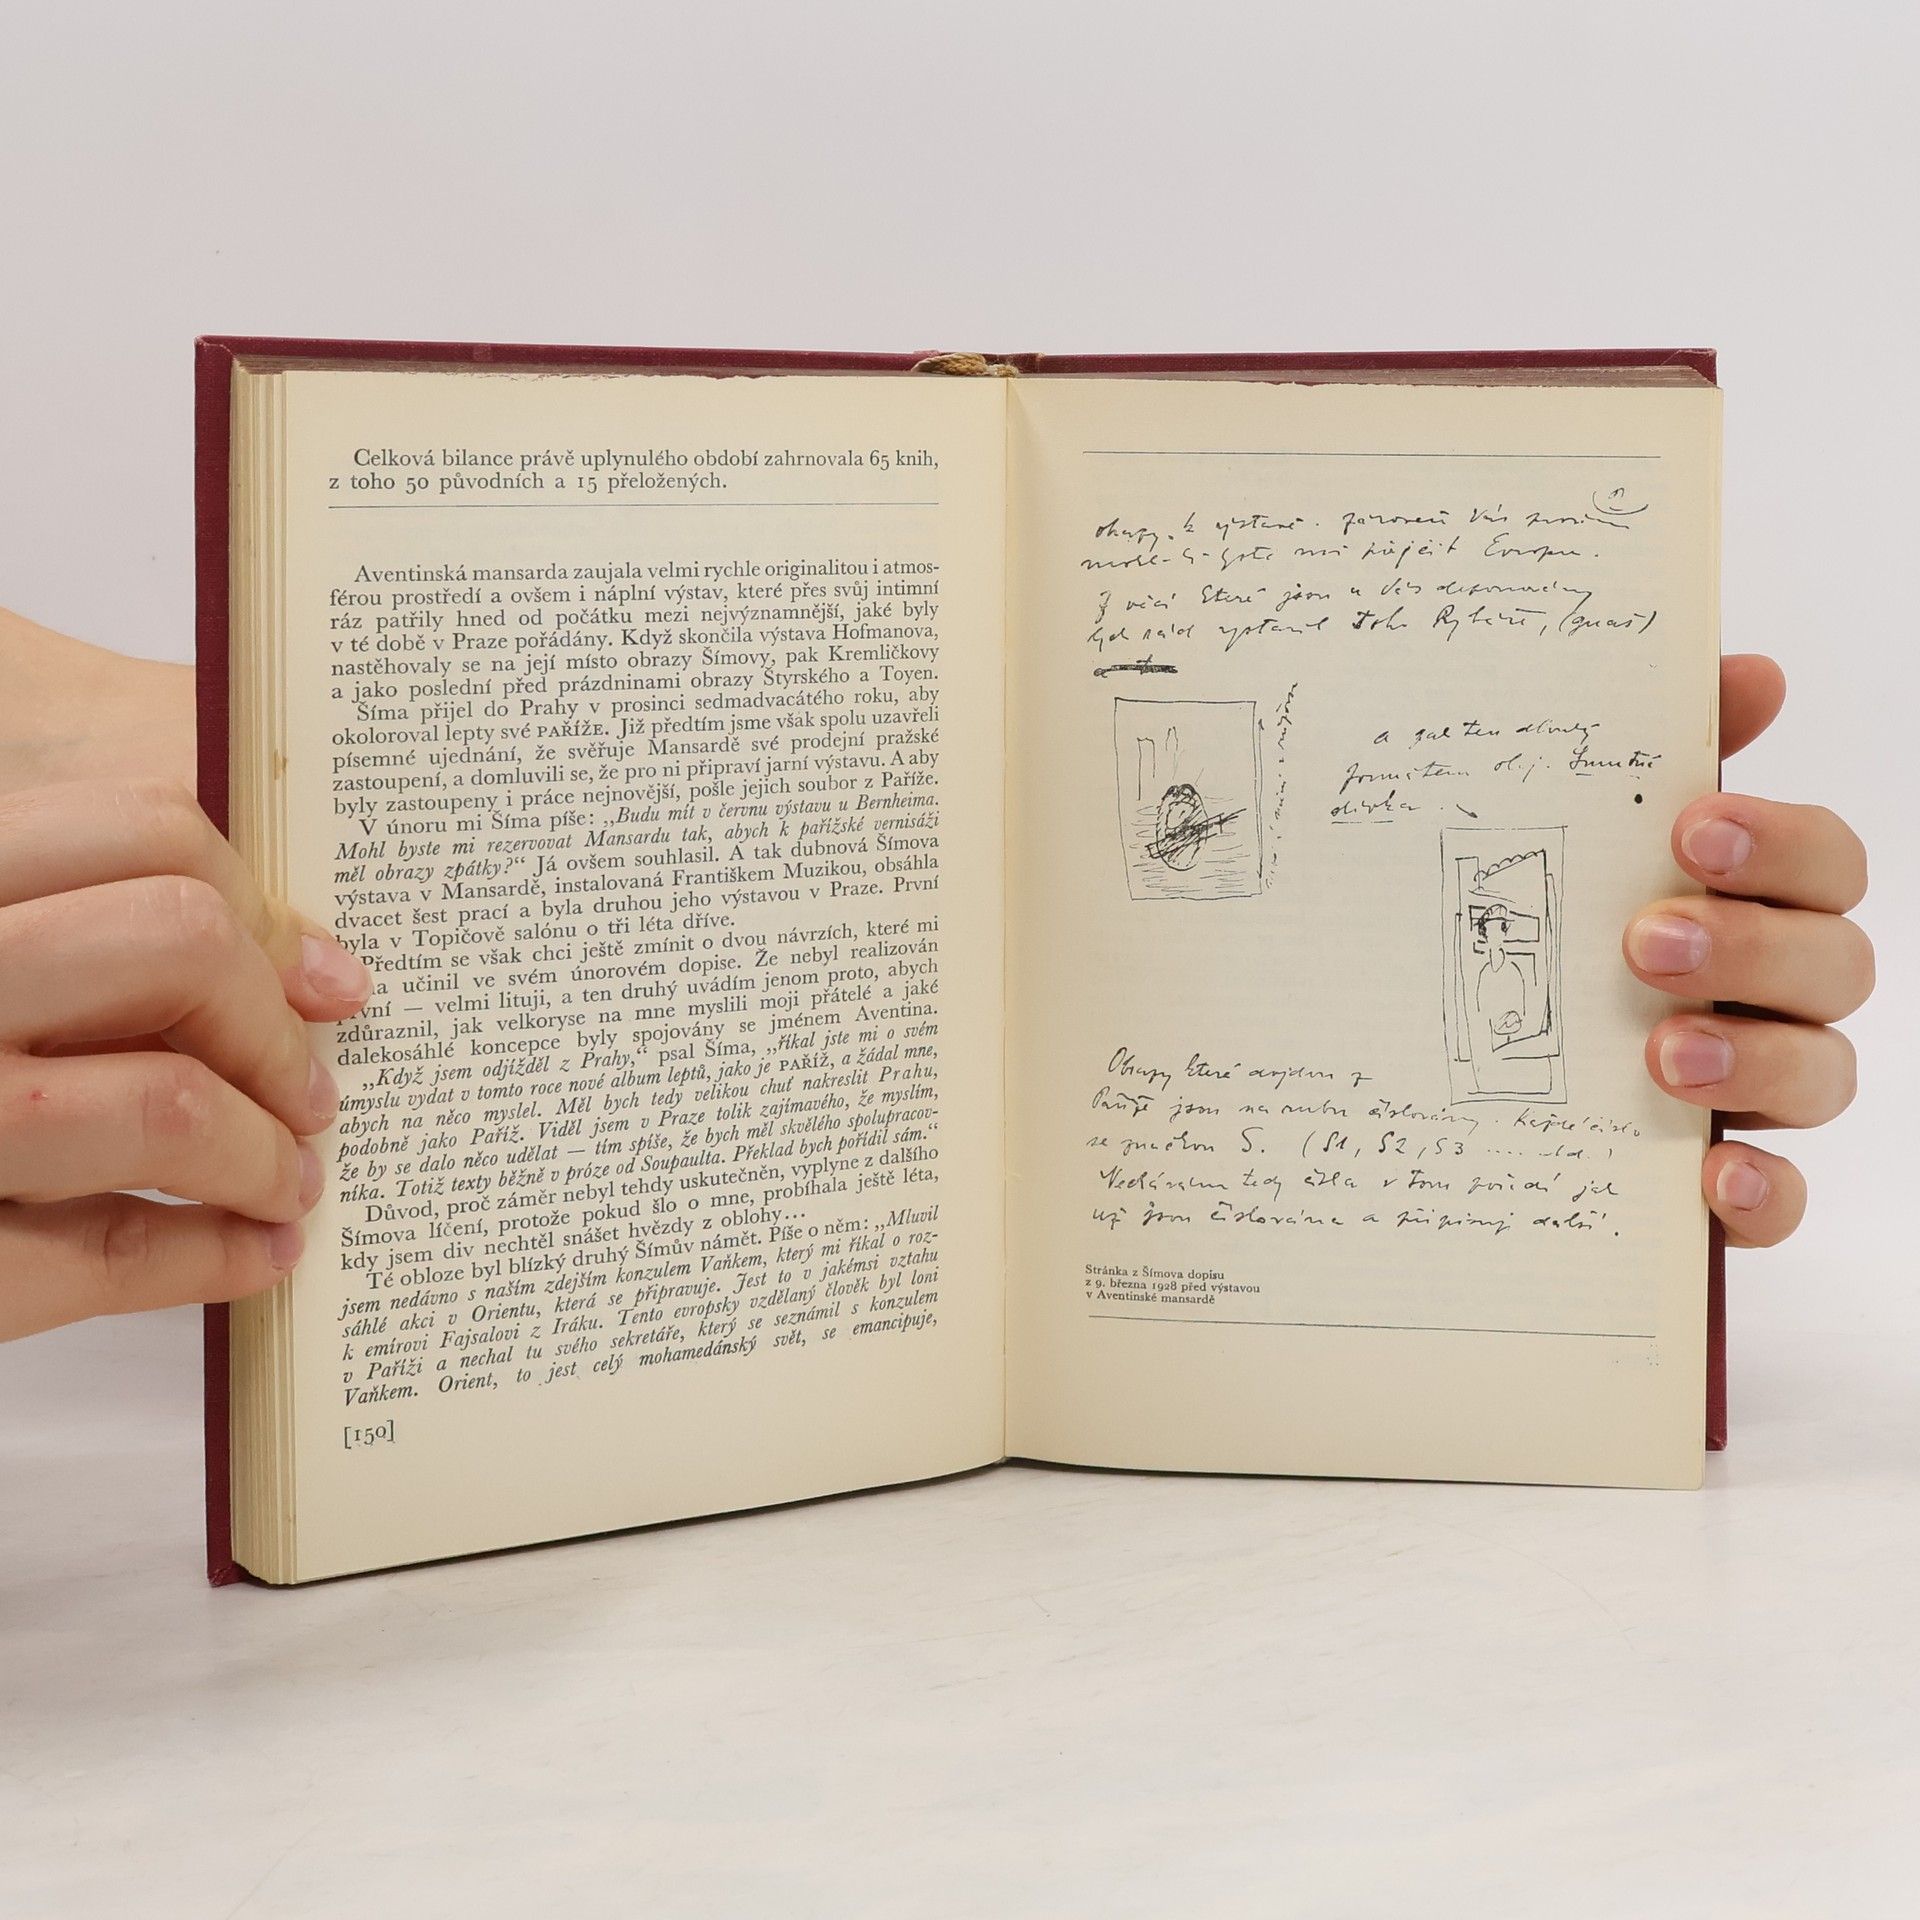 Celková bilance právě uplynulého období zahrnovala 65 knih,
z toho 50 původních a 15 přeložených.
Aventinská mansarda zaujala velmi rychle originalitou i atmos-
férou prostředí a ovšem i náplní výstav, které přes svůj intimní
ráz patřily hned od počátku mezi nejvýznamnější, jaké byly
v té době v Praze pořádány. Když skončila výstava Hofmanova,
nastěhovaly se na její místo obrazy Šímovy, pak Kremličkovy
a jako poslední před prázdninami obrazy Štyrského a Toyen.
Šíma přijel do Prahy v prosinci sedmadvacátého roku, aby
okoloroval lepty své PAŘÍŽE. Již předtím jsme však spolu uzavřeli
písemné ujednání, že svěřuje Mansardě své prodejní pražské
zastoupení, a domluvili se, že pro ni připraví jarní výstavu. A aby
byly zastoupeny i práce nejnovější, pošle jejich soubor z Paříže.
V únoru mi Šíma píše: „Budu mít v červnu výstavu u Bernheima.
Mohl byste mi rezervovat Mansardu tak, abych k pařížské vernisáži
měl obrazy zpátky?“ Já ovšem souhlasil. A tak dubnová Šímova
výstava v Mansardě, instalovaná Františkem Muzikou, obsáhla
dvacet šest prací a byla druhou jeho výstavou v Praze. První
byla v Topičově salónu o tři léta dříve.
Předtím se však chci ještě zmínit o dvou návrzích, které mi
učinil ve svém únorovém dopise. Že nebyl realizován
— velmi lituji, a ten druhý uvádím jenom proto, abych
zdůraznil, jak velkoryse na mne myslili moji přátelé a jaké
dalekosáhlé koncepce byly spojovány se jménem Aventina.
„Když jsem odjížděl z Prahy,“ psal Šíma, „říkal jste mi o svém
úmyslu vydat v tomto roce nové album leptů, jako je PAŘÍŽ, a žádal mne,
abych na něco myslel. Měl bych tedy velikou chuť nakreslit Prahu,
podobně jako Paříž. Viděl jsem v Praze tolik zajímavého, že myslím,
že by se dalo něco udělat — tím spíše, že bych měl skvělého spolupracov-
níka. Totiž texty běžně v próze od Soupaulta. Překlad bych pořídil sám.“
Důvod, proč záměr nebyl tehdy uskutečněn, vyplyne z dalšího
Šímova líčení, protože pokud šlo o mne, probíhala ještě léta,
kdy jsem div nechtěl snášet hvězdy z oblohy...
Té obloze byl blízký druhý Šímův námět. Píše o něm: „Mluvil
jsem nedávno s naším zdejším konzulem Vaňkem, který mi říkal o roz-
sáhlé akci v Orientu, která se připravuje. Jest to v jakémsi vztahu
k emírovi Fajsalovi z Iráku. Tento evropsky vzdělaný člověk byl loni
v Paříži a nechal tu svého sekretáře, který se seznámil s konzulem
Vaňkem. Orient, to jest celý mohamedánský svět, se emancipuje,
[150]
obrazy k výstavě. Zároveň Vás prosím
mohl-li byste mi půjčit Evropu.
Z věcí které jsou u Vás deponovány
byl rád vystavil toho Rybáře, (guaš)
a pak ten dlouhý
formátem olej. Smutná
dívka.
Obrazy které dojdou z
Paříže jsou na rubu číslovány. Každé číslo
se značkou S. (S1, S2, S3 ..... atd.)
Nechávám tedy čísla v tom pořadí jak
už jsou číslována a připisuji další.
Stránka z Šímova dopisu
z 9. března 1928 před výstavou
v Aventinské mansardě